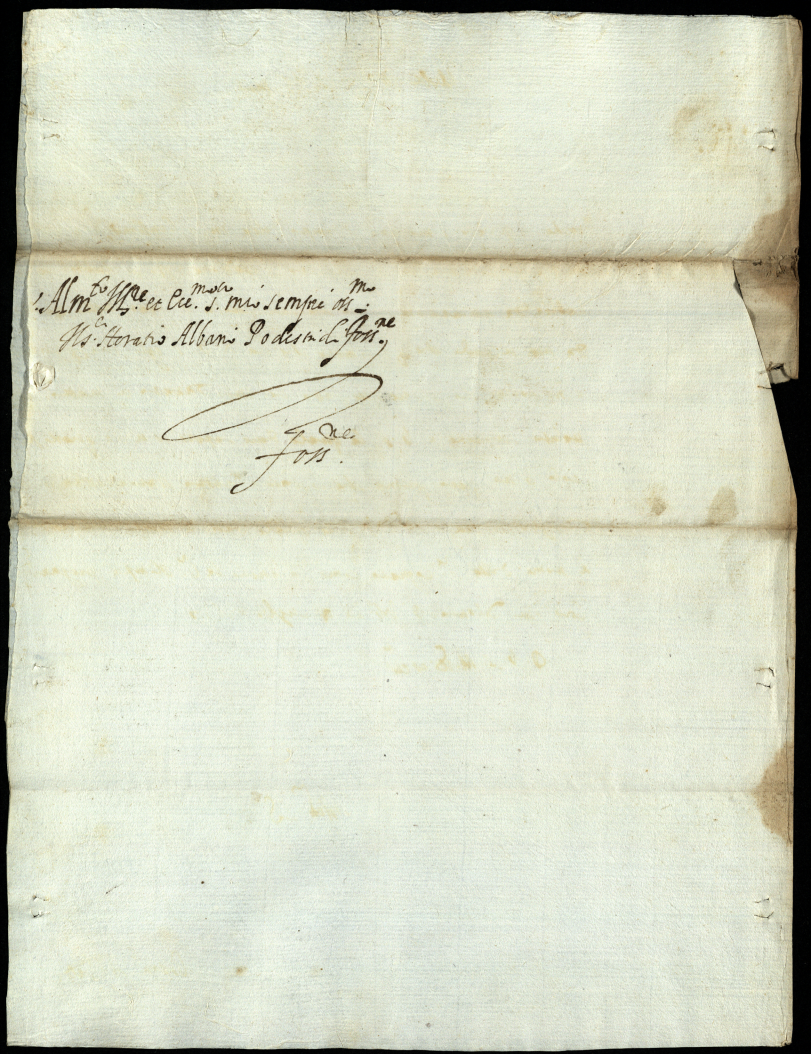 Al m.to Ill.re et Ecc.mo s. mio sempre oss.mo
Il s.r Horatio Albani Podestà di Foss.ne
Foss.ne